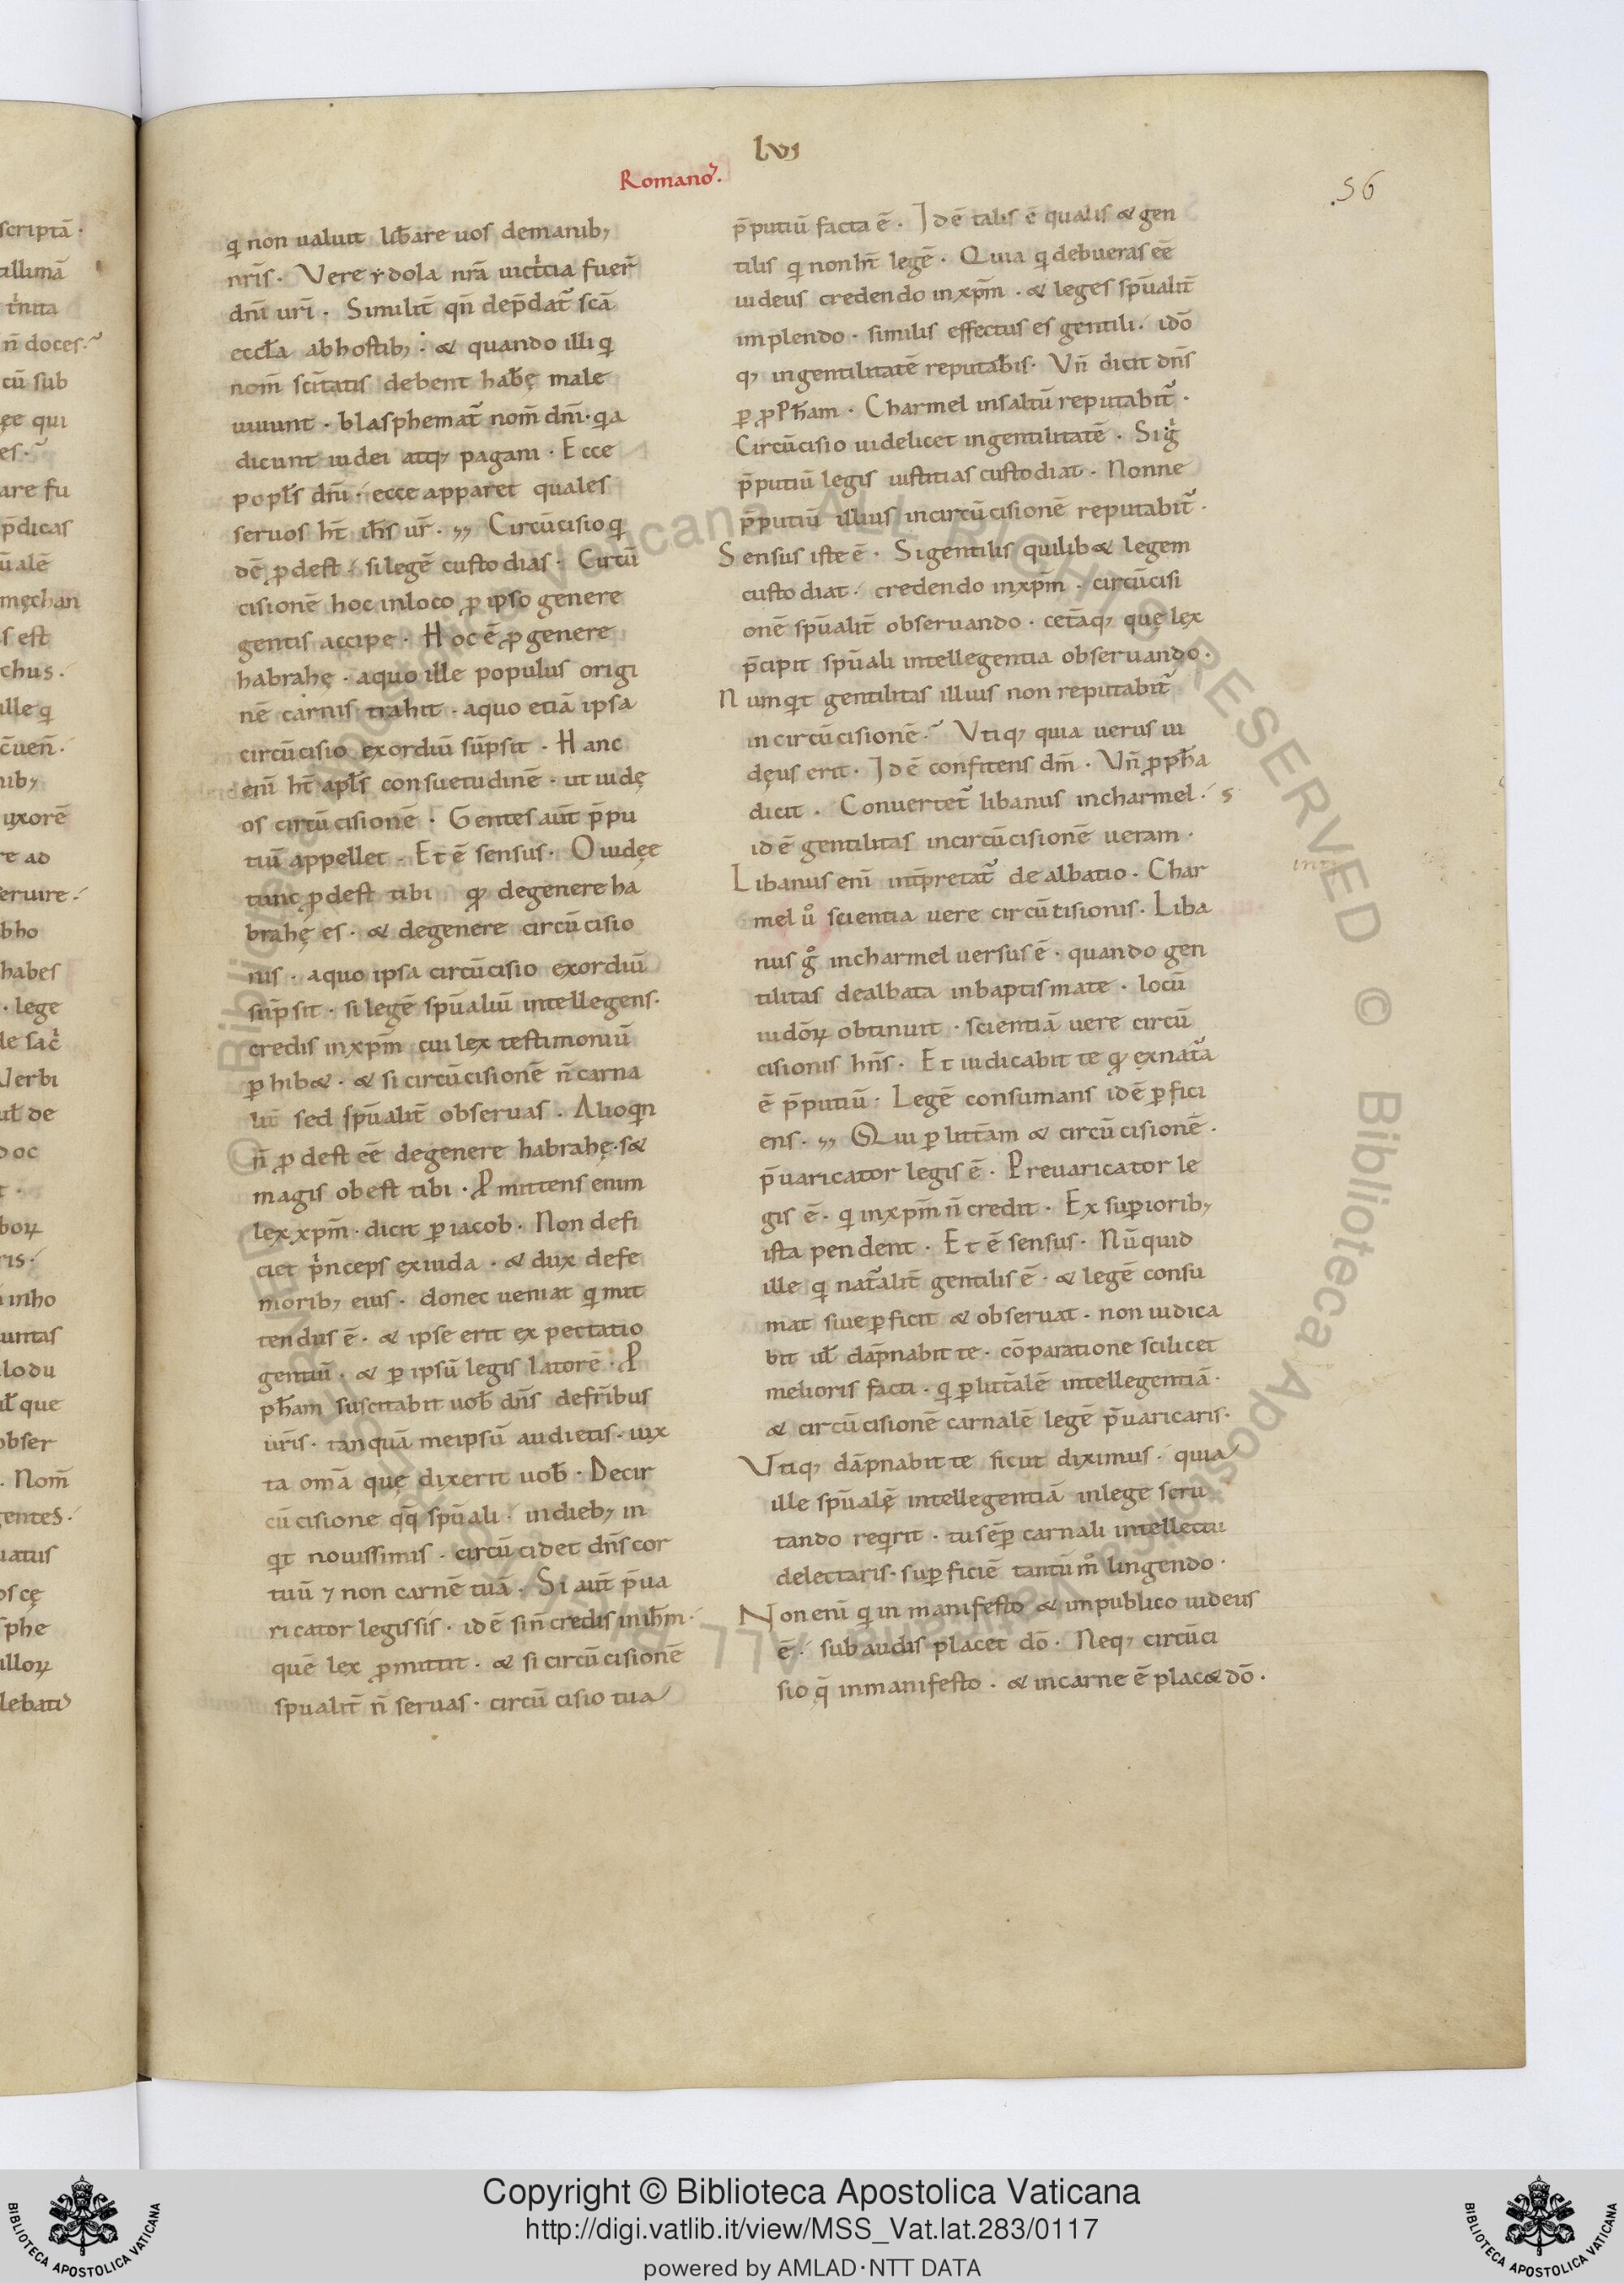 lvı
Romanoꝝ.
.56
scriptā·
ıllimā
tͥnita
n̄ doces.
cū sub
ęe qui
es·
are fu
p̄dicas
ūalē
męchan
s est
chus.
ılle q̇
c̄uen̄.
nib;
uxorē
re ad
eruire.
bho
habes
· lege
de sac̄
Verbi
ul̄ de
doc
boꝝ
ris.
inho
untas
lodu
ul̄ que
obser
. Nom̄
gentes.
uatus
os cę
sphe
illoꝝ
lebat
q̇ non ualuit lib̄are uos demanib;
nr̄is. Vere ydola nr̄a uictͥcia fuer̄
dn̄i ur̄i. Similit̄ qn̄ dep̄dat᷑ sc̄a
eccl̄a abhostib; · & quando illi q̇
nom̄ sc̄itatis debent hab̄ę male
uiuunt · blasphemat᷑ nom̄ dn̄i· q̇a
dicunt iudei atq; pagani · Ecce
popl̄s dn̄i· ecce apparet quales
seruos ht̄ ih̄s ur̄. ,,, Circūcisio q̇
dē ꝓdest· si legē custodias · Circū
cisionē hoc inloco ꝓ ipso genere
gentis accipe · Hoc ē ꝓ genere
habrahę · aquo ille populus origi
nē carnis trahit · aquo etiā ipsa
circūcisio exordiū sūpsit · Hanc
eni ht̄ apl̄s consuetudinē · ut iudę
os circūcisionē · Gentes aut̄ p̄pu
tiū appellet · Et ē sensus · O iudęe
tunc ꝓdest tibi qđ degenere ha
brahę es · & degenere circūcisio
nis · aquo ipsa circūcisio exordiū
sūpsit · si legē spūaliū intellegens·
credis inxp̄m cui lex testimoniū
ꝑhib& · & si circūcisionē n̄ carna
lit̄ sed spūalit̄ obseruas · Alioq̇n
n̄ ꝓdest eē degenere habrahę· s&
magis obest tibi · Ꝓmittens enim
lex xp̄m · dicit ꝑ iacob · Non defi
ciet pͥnceps exiuda · & dux defe
morib; eius · donec ueniat q̇ mit
tendus ē · & ipse erit expectatio
gentiū · & ꝑ ipsū legis latorē · Ꝓ
ph̄am suscitabit uob̄ dn̄s defr̄ibus
ur̄is · tanquā meipsū audietis · iux
ta om̄a quę dixerit uob̄ · Decir
cūcisione qq̨ spūali · indieb; in
q̇t nouissimis · circūcidet dn̄s cor
tuū ⁊ non carnē tuā · Si aut̄ p̄ua
ricator legis sis · idē si n̄ credis in ih̄m·
quē lex ꝓmittit · & si circūcisionē
spualit̄ n̄ seruas · circūcisio tua
p̄putiū facta ē · Idē talis ē qualis & gen
tilis q̇ non ht̄ legē · Quia q̇ debueras eē
iudeus credendo inxp̄m · & leges spūalit̄
implendo · similis effectus es gentili · idō
q; ingentilitatē reputab̄is · Vn̄ dicit dn̄s
ꝑ ꝓph̄am · Charmel insaltū reputabit᷑ ·
Circūcisio uidelicet ingentilitatē · Si gͥ
p̄putiū legis iustitias custodiat · Nonne
p̄putiū illius incircūcisionē reputabit᷑ ·
Sensus iste ē · Si gentilis quilib& legem
custodiat· credendo inxp̄m · circūcisi
onē spūalit̄ obseruando · cet̄aq; quę lex
p̄cipit spūali intellegentia obseruando ·
Numq̇t gentilitas illius non reputabit᷑
incircūcisionē· Vtiq; quia uerus iu
dęus erit · Idē confitens dm̄ · Vn̄ ꝓph̄a
dicit · Conuertet᷑ libanus incharmel · s
idē gentilitas incircūcisionē ueram ·
Libanus eni int̄pretat᷑ dealbatio · Char
mel uͦ scientia uere circūcisionis · Liba
nus gͦ incharmel uersus ē · quando gen
tilitas dealbata inbaptismate · locū
iudōꝝ obtinuit · scientiā uere circū
cisionis hn̄s · Et iudicabit te qđ exnat᷑a
ē p̄putiū · Legē consumans idē ꝑfici
ens · ,,, Qui ꝑ litt̄am & circūcisionē ·
p̄uaricator legis ē · Preuaricator le
gis ē · q̇ inxp̄m n̄ credit · Ex superiorib;
ista pendent · Et ē sensus · Nūquid
ille q̇ nat᷑alit̄ gentilis ē · & legē consu
mat siue ꝑficit & obseruat · non iudica
bit ul̄ dāpnabit te · cōparatione scilicet
melioris facti · q̇ ꝑ litt̄alē intellegentiā ·
& circūcisionē carnalē legē p̄uaricaris·
Vtiq; dāpnabit te sicut diximus · quia
ille spūalē intellegentiā inlege scru
tando req̇rit · tu sēꝑ carnali intellectu
delectaris · suꝑficiē tantūmͦ lingendo ·
Non eni q̇ in manifesto & inpublico iudeus
ē· subaudis placet dō · Neq; circūci
sio q̨ inmanifesto · & incarne ē plac& dō ·
Copyright © Biblioteca Apostolica Vaticana
http://digi.vatlib.it/view/MSS_Vat.lat.283/0117
powered by AMLAD·NTT DATA
BIBLIOTECA APOSTOLICA VATICANA
BIBLIOTECA APOSTOLICA VATICANA